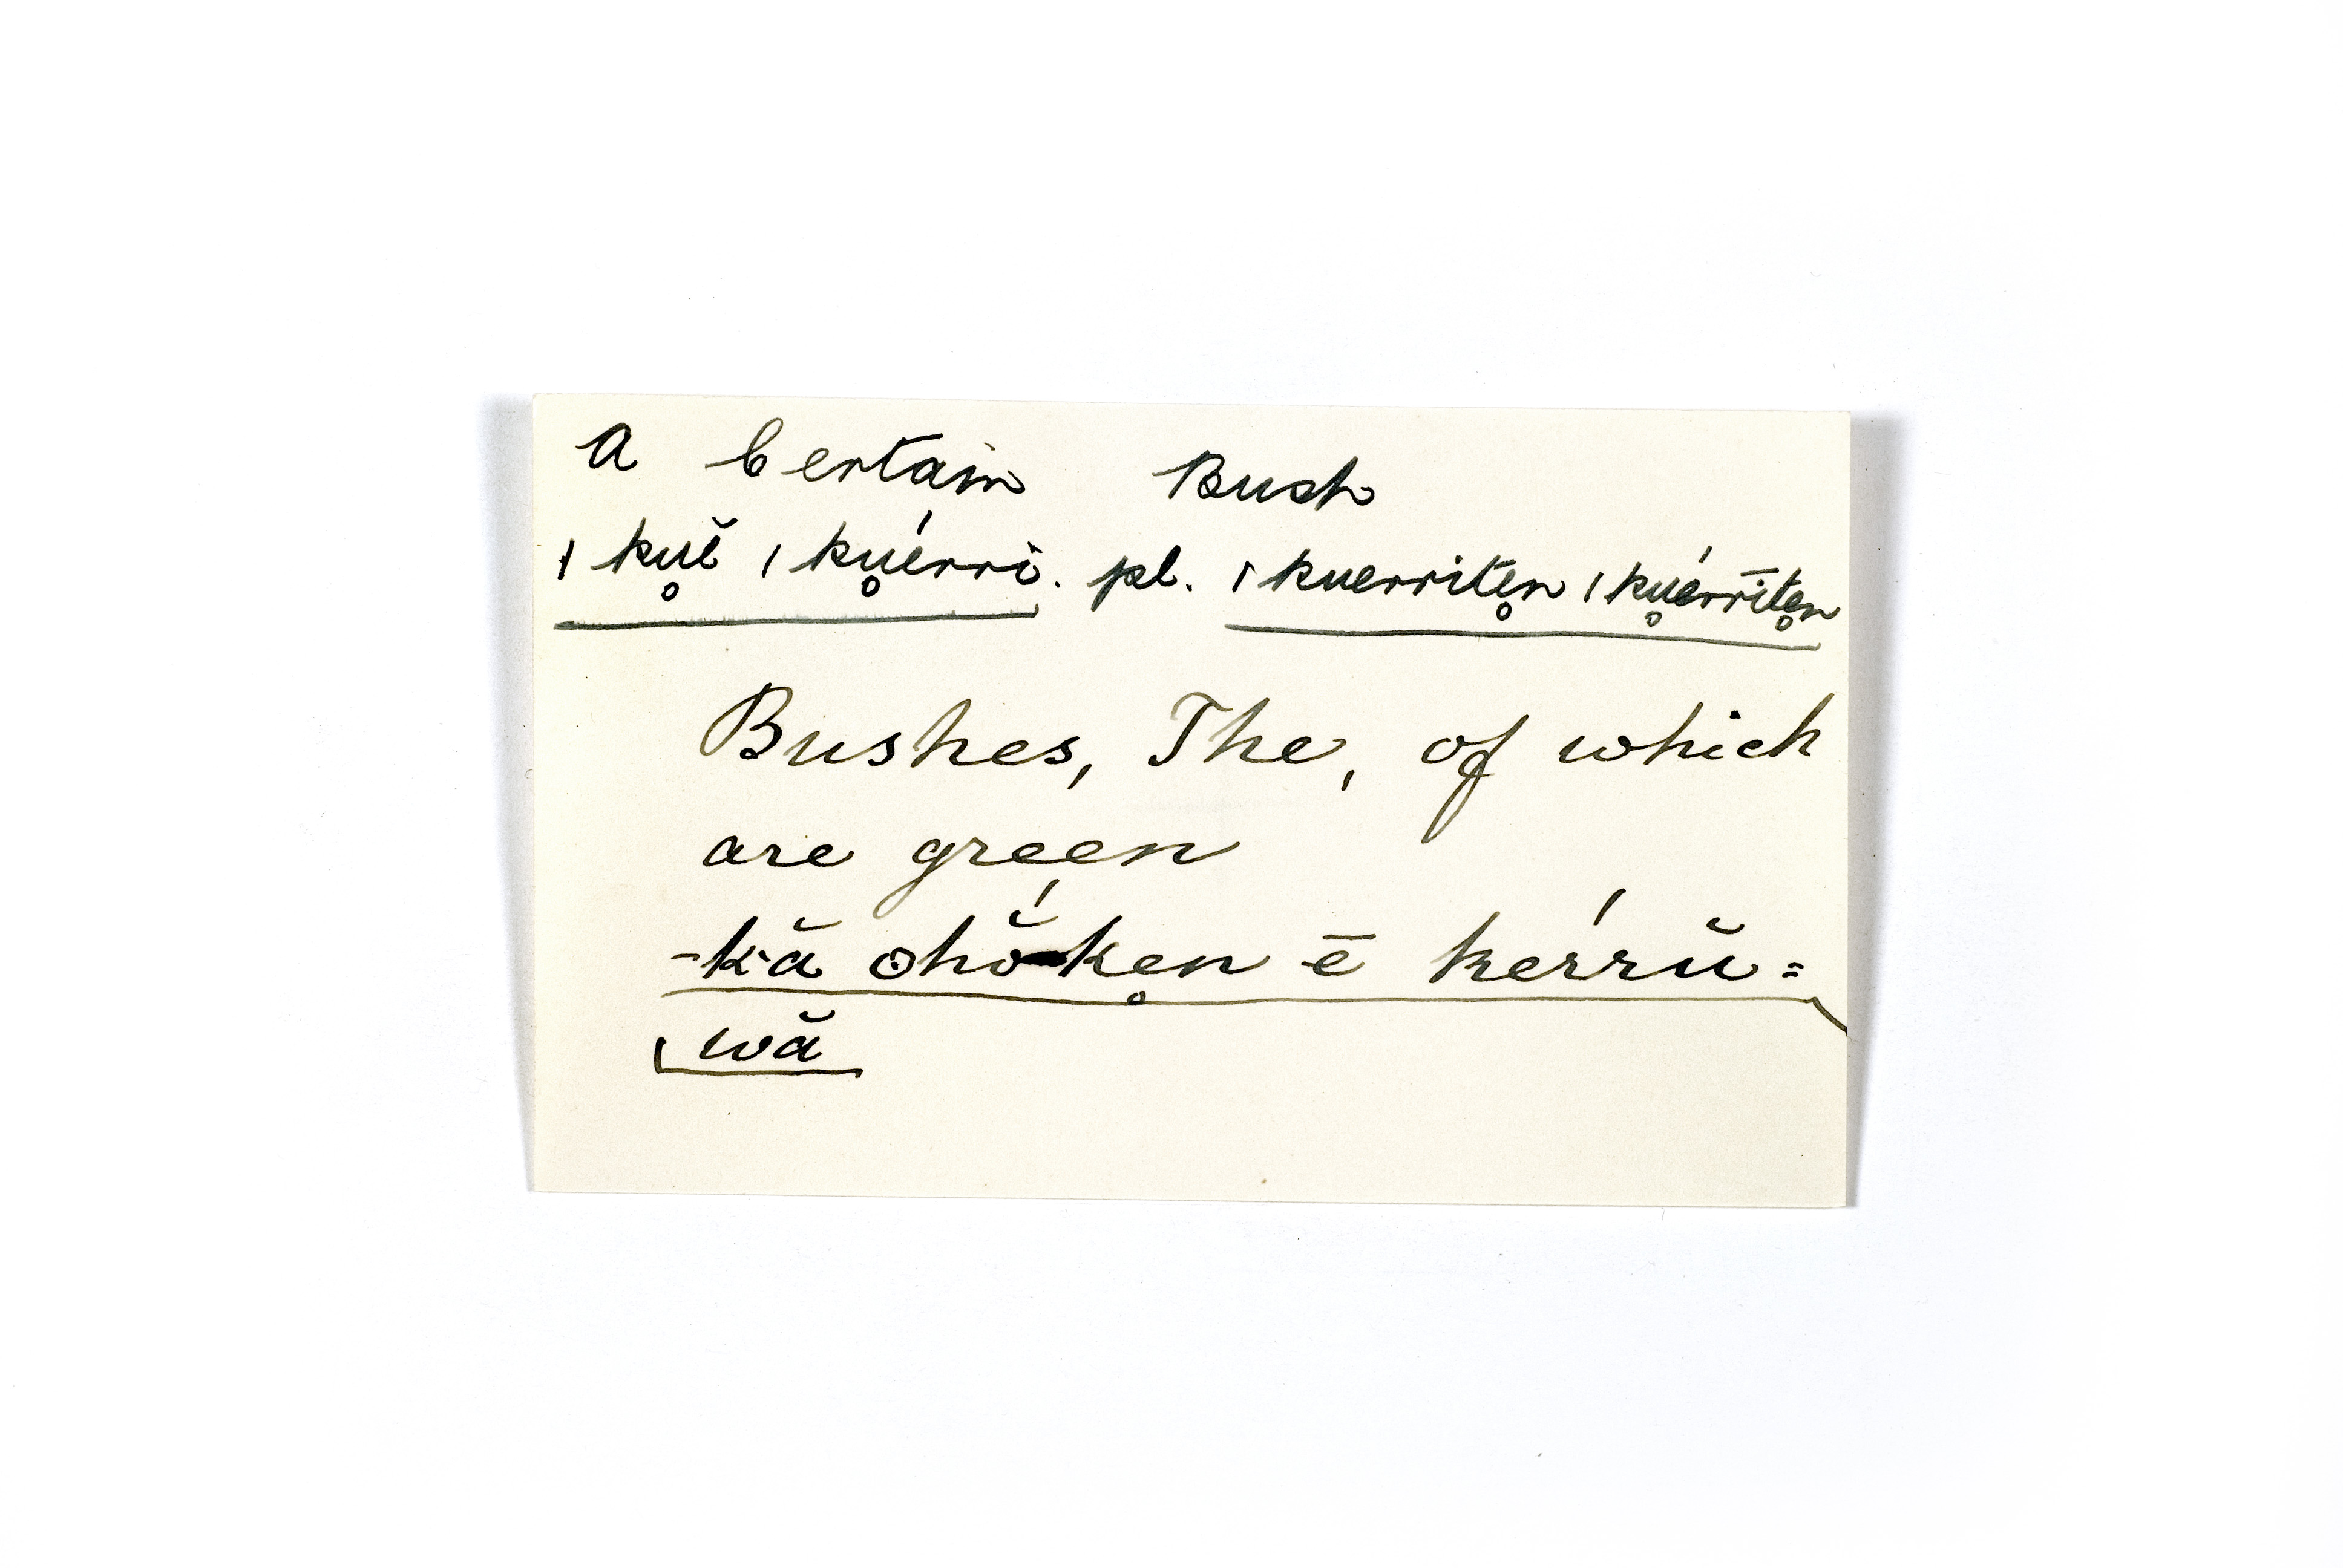 A Certain Bush
ǀku̥ĕ ǀku̥érri. pl. ǀkuerrite̥n ǀku̥érrīte̥n
Bushes, The, of which
are green
-kă ohŏ́ke̥n ē kérrŭ=
wă